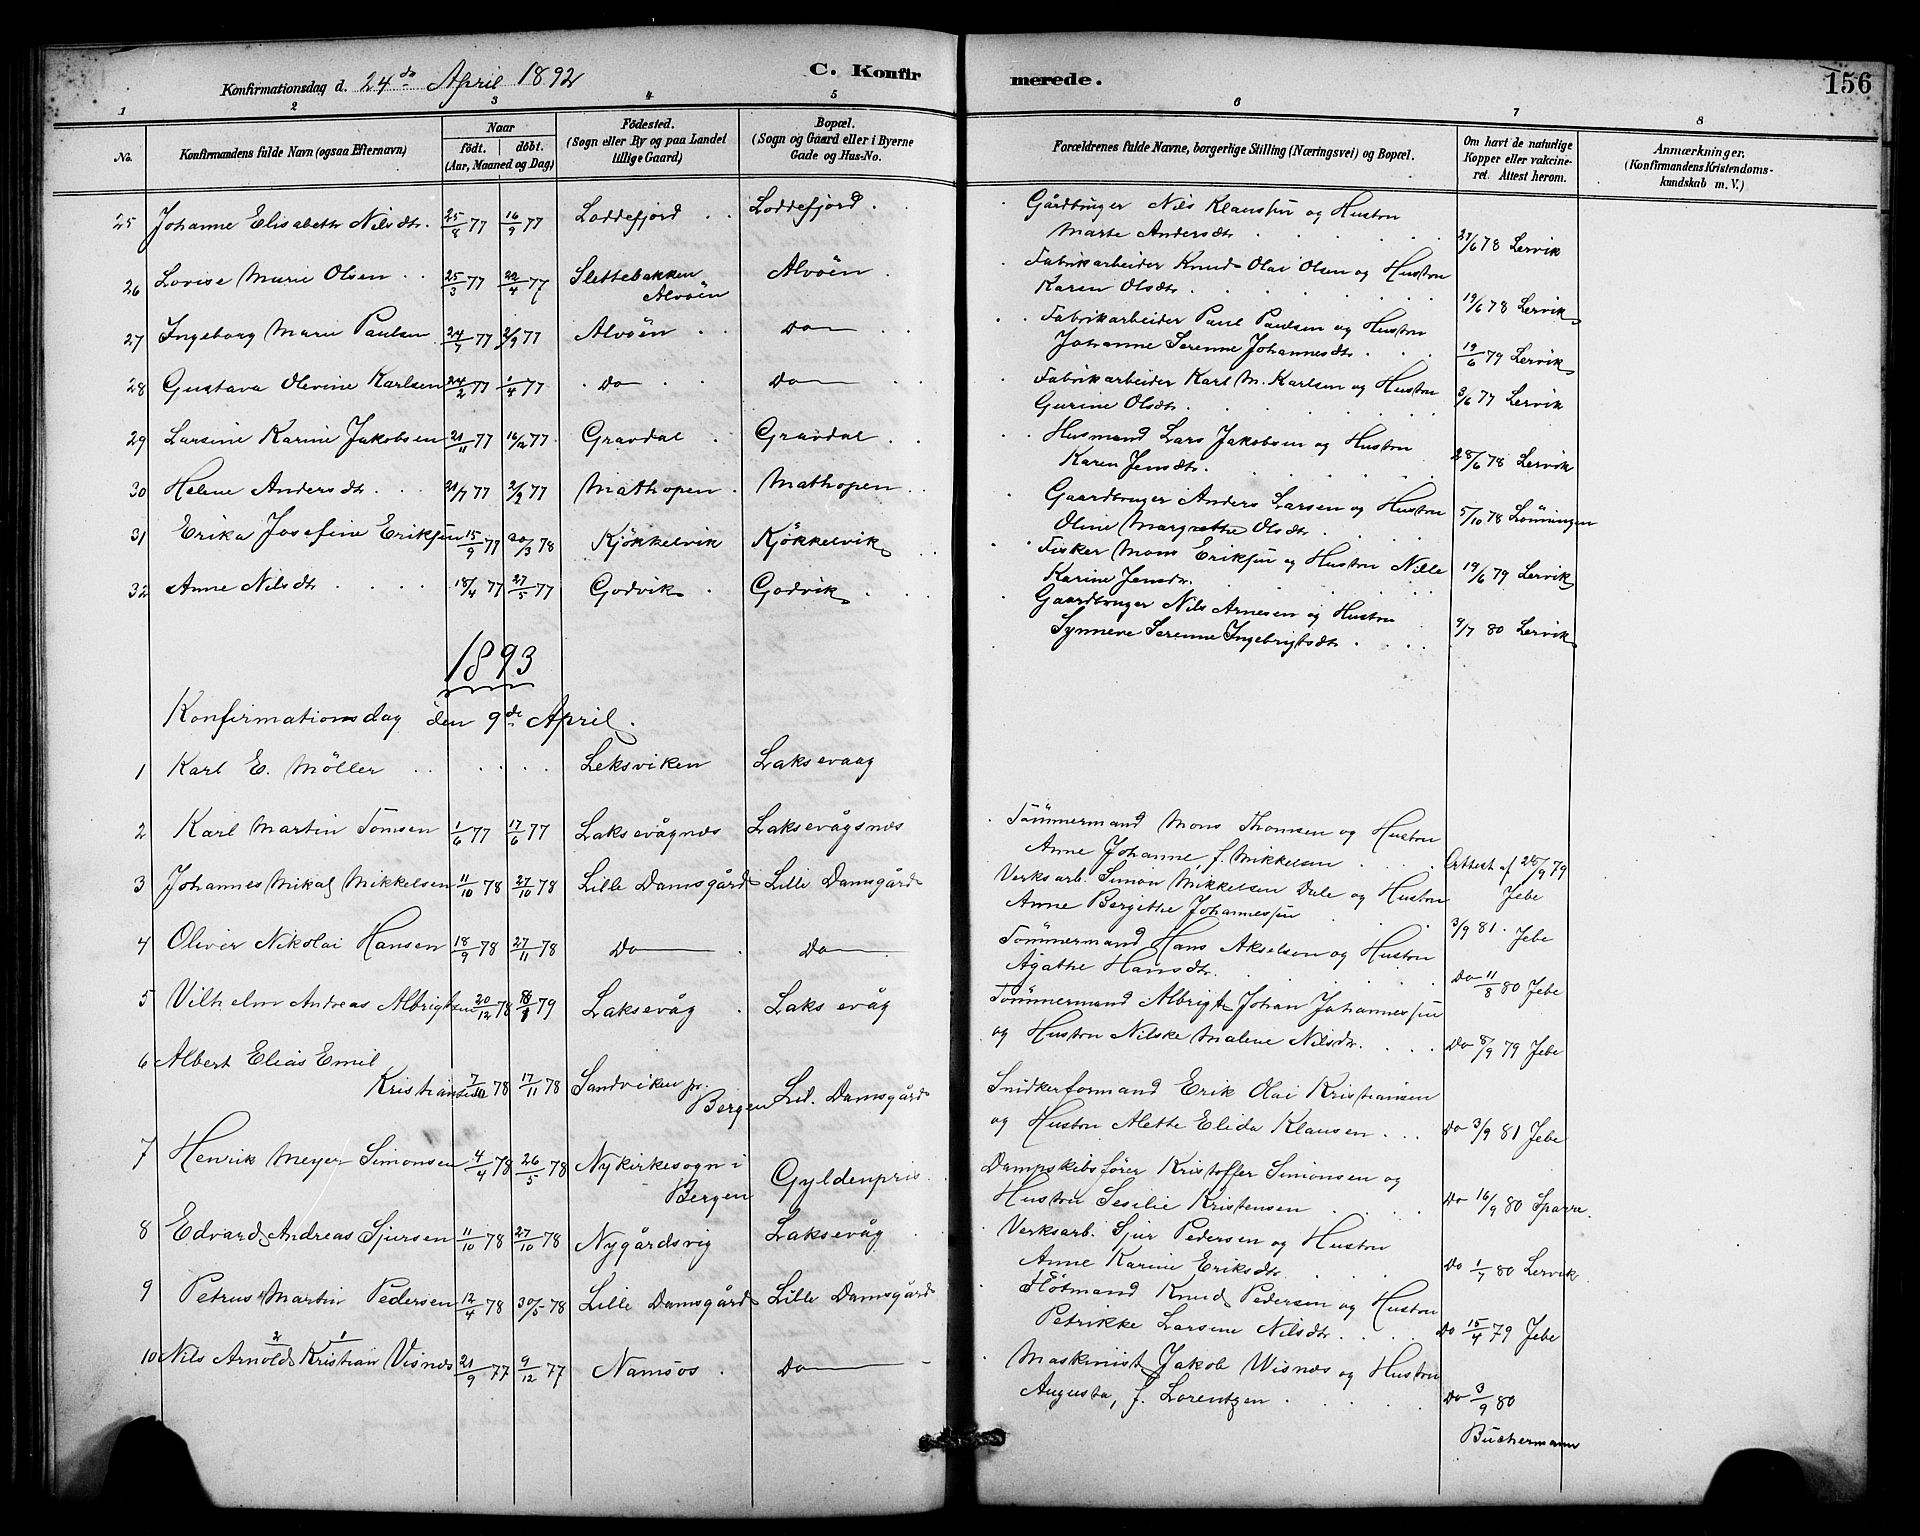 Konfirmationsdag d. 24de April 1892
C. Konfir
merede.
156
1 2 3 4 5 6 7 8
No.
Konfirmandens fulde Navn (ogsaa Efternavn)
Naar
födt. döbt.
(Aar, Maaned og Dag)
Födested.
(Sogn eller By og paa Landet
tillige Gaard)
Bopæl.
(Sogn og Gaard eller i Byerne
Gade og Hus-No.
Forældrenes fulde Navne, borgerlige Stilling (Næringsvei) og Bopæl.
Om havt de naturlige
Kopper eller vakcine-
ret. Attest herom.
Anmærkninger.
(Konfirmandens Kristendoms-
kundskab m. V.)
25 Johanne Elisabeth Nilsdtr. 25/8 77 16/9 77 Loddefjord Loddefjord Gårdbruger Nils Klausen og Hustru
Marte Andersdtr. 27/6 78 Lervik
26 Lovise Marie Olsen 25/3 77 22/4 77 Slettebakken Alvöen Fabrikarbeider Knud Olai Olsen og Hustru
Alvöen Karen Olsdtr. 19/6 78 Lervik
27 Ingeborg Marie Paulsen 24/7 77 2/9 77 Alvöen Do Fabrikarbeider Paul Paulsen og Hustru
Johanne Serenne Johannesdtr. 19/6 79 Lervik
28 Gustava Olevine Karlsen 24/2 77 1/4 77 Do Do Fabrikarbeider Karl M. Karlsen og Hustru
Gurine Olsdtr. 3/6 77 Lervik
29 Larsine Karine Jakobsen 21/11 77 16/12 77 Gravdal Gravdal Husmand Lars Jakobsen og Hustru
Karen Jensdtr. 28/6 78 Lervik
30 Helene Andersdtr. 21/7 77 2/9 77 Mathopen Mathopen Gaardbruger Anders Larsen og Hustru
Oline Margrethe Olsdtr. 5/10 78 Lönningen
31 Erika Josefine Eriksen 15/9 77 20/3 78 Kjøkkelvik Kjøkkelvik Fisker Mons Eriksen og Hustru Nille
Karine Jensdtr. 19/6 79 Lervik
32 Anne Nilsdtr. 18/4 77 27/5 77 Godvik Godvik Gaardbruger Nils Arnesen og Hustru
Synneve Serenne Ingebrigtsdtr. 9/7 80 Lervik
1893
Konfirmationsdag den 9de April.
1 Karl E. Möller Leksviken Laksevaag
2 Karl Martin Tomsen 1/6 77 17/6 77 Laksevågnæs Laksevågsnæs Tömmermand Mons Thomsen og Hustru
Anne Johanne f. Mikkelsen Attest af 25/9 79
Jebe
3 Johannes Mikal Mikkelsen 11/10 78 27/10 78 Lille Damsgård Lille Damsgård Verksarb. Simon Mikkelsen Dale og Hustru
Anne Bergithe Johannessen 3/9 81. Jebe
4 Oliver Nikolai Hansen 18/9 78 27/11 78 Do Do Tömmermand Hans Akselsen og Hustru
Agathe Hansdtr. Do 11/8 80 Jebe
5 Vilhelm Andreas Albrigtsen 20/12 78 79 Laksevåg Laksevåg Tömmermand Albrigt Johan Johannessen
og Hustru Nilske Malene Nilsdtr. Do 8/9 79 Jebe
6 Albert Elias Emil
Kristiansen 7/10 78 17/11 78 Sandviken pr. Snidkerformand Erik Olai Kristiansen
Bergen Lil. Damsgård og Hustru Alette Elida Klausen Do 3/9 81 Jebe
7 Henrik Meyer Simonsen 4/4 78 26/5 78 Nykirkesogn i Gyldenpris Dampskibsfører Kristoffer Simonsen og
Bergen Hustru Sesilie Kristensen Do 16/9 80 Sparre.
8 Edvard Andreas Sjursen 11/10 78 27/10 78 Nygårdsvig Laksevåg Verksarb. Sjur Pedersen og Hustru
Anne Karine Eriksdtr. Do 1/7 80 Lervik
9 Petrus Martin Pedersen 12/4 78 30/5 78 Lille Damsgård Lille Damsgård Flötmand Knud Pedersen og Hustru
Petrikke Larsine Nilsdtr. Do 15/4 79 Jebe
2 1
10 Nils Arnold Kristian Visnæs 21/9 77 9/12 77 Namsos Do Maskinist Jakob Wisnæs og Hustru
Augusta, f. Lorentzen Do 3/9 80
Büchermann